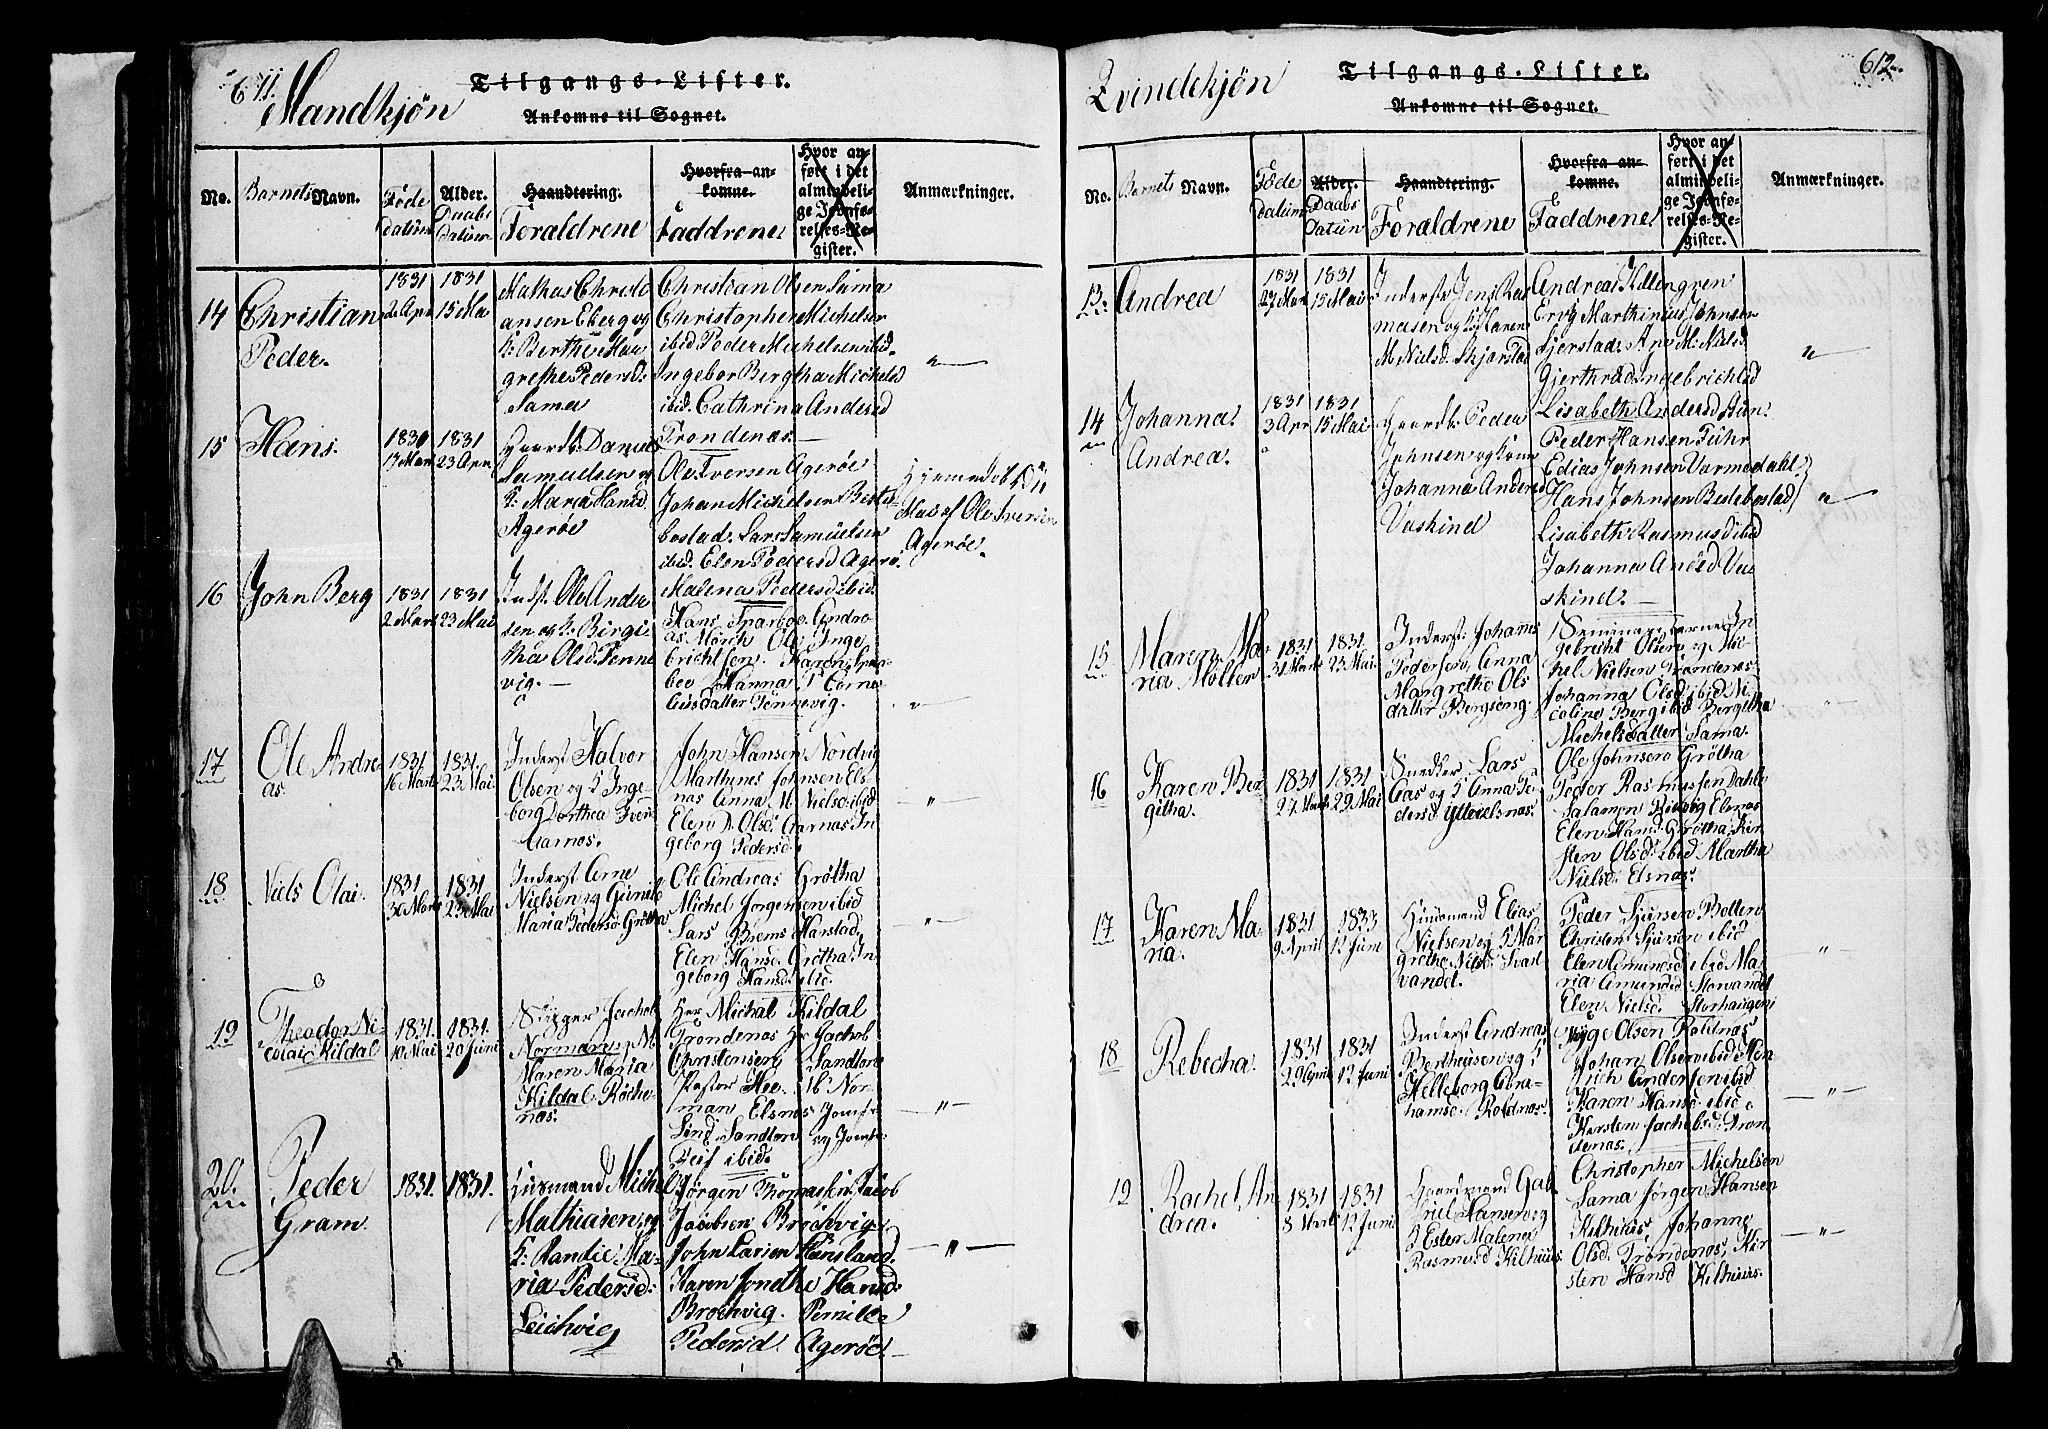 611.
Mandkjön
Tilgangs-Lister.
Ankomne til Sognet.
No.
Barnets Navn.
Föde datum
Alder. Daabs Datum
Haandtering. Foraldrene
Hvorfra ankomne. Faddrene
Hvor anføte i det almindelige Jevnførelses-Register.
Anmærkninger.
14
Christian
Peder.
1831
2 Apr
1831
15 Mai
Mathas Christi
ansen Eberg og
K: Berthe Mar
grethe Pedersd:
Sama
Christian Olsen Sama
Christopher Michelsen
ibid Peder Michelsen ibid.
Ingebor Bergitha Michelsd
ibid. Cathrina Andersd
Trondenas.
"
15
Hans.
1831
17 Mars
1831
23 Apr.
Gaardb. Daniel
Samuelsen og
K: Maria Hansd
Agerøe
Ole Iversen Agerøe
Johan Michelsen Beste
bostad. Lars Samuelsen
ibid. Elen Pedersd Agerø.
Malena Pedersd ibid.
Hjemmedöbt d 11
Mai af Ole Iversen
Agerøe.
16
John Berg
1831
2 Mars
1831
23 Mai
Indst. Ole Ander
sen og K: Birgi
tha Olsd. Tenne
vig.
Hans Sparboe Andre
as Mörch Ole Inge
brichtsen. Karen Spar
boe Hanna T Corne
liusdatter Tennevig.
"
17
Ole Andre
as
1831
16 Marts
1831.
23 Mai.
Inderst Halvor
Olsen og K Inge
borg Dorthea Iver
Aarnes.
John Hansen Nordvig
Marthines Johnsen Els
nas Anna M Nielsd ibid
Elen D. Olsd. Aarnas In
geborg Pedersd.
"
18
Niels Olai.
1831
30 Mars
1831
23 Mai
Inderst Arne
Nielsen og Gunild
Maria Pedersd Grötha
Ole Andreas Grötha
Michel Jorgensen ibid
Lars Brems Harstad
Elen Hansd. Grötha In
geborg Hansd ibid.
"
19
Theodor Ni
colai Kildal
1831.
10 Mai
1831.
20 Juni
Jachob
Normann og M
Maren Maria
Kildal Röche
nas.
Her Michal Kildal
Trondenas Hr Jachob
Christensen Sandtorv
Pastor Hee. M. Nor
man Elsnas Jomfr
Lind Sandtorv og Jomfr
ibid.
"
20.
Peder
Gram.
1831.
1831.
Husmand Mich
Mathiasen og
K: Randie Ma
ria Pedersd:
Leichvig
Jörgen Thomassen Jacob
Jacobsen Brochvig
John Larsen
Karen Jonetha Hansd:
Brochvig. Pernille
Pedersd. Agerøe.
"
612.
Qvindekjön
Tilgangs-Lister.
Ankomne til Sognet.
No.
Barnets Navn.
Föde datum
Alder. Daabs Datum
Haandtering. Foraldrene
Hvorfra ankomne. Faddrene
Hvor anført i det almindelige Jevnførelses-Register.
Anmærkninger.
13.
Andrea
1831
27 Mar
1831
15 Mai
Inderste Jens Ras
musen og K Maren
M. Nielsd. Skjarstad
Andreas Killengren
Ervig Marthinus Johnsen
Sjerstad. Ane M: Nielsd
Gjerthrud Ingebrichtsd
Lisabeth Andersd
"
14
Johanna
Andrea.
1831
3 Apr
1831
15 Mai
Gaardb: Peder
Johnsen og Kone
Johanna Andersd
Vaskind
Peder Hansen Fuhr
Edias Johnsen Varmedahl
Hans Johnsen Bestebostad
Lisabeth Rasmusd ibid
Johanna Andsd Vas
kind.
"
15
Maren Ma
ria Molten
1831
31 Marts
1831.
23 Mai.
Inderst: Johannes
Pedersen, Anna
Margrethe Ols
datter Bergseng
Seminaristerne In
gebricht Olsen og Mi
chel Nielsen Trondenas
Johanna Olsd ibid Ni
coline Berg ibid Bergitha
Michelsdatter Sama.
"
16
Karen Ber
githa.
1831
24 Marts
1831
29 Mai
Snedker Lars
Aas og K Anna Pe
dersd Ytterelsnas.
Ole Johnsen Grötha
Peder Rasmussen Dahle
Salamon Elsnas
Elen Hansd. Grötha Kir
sten Olsd. ibid Martha
Nielsd. Elsnas.
17
Karen Ma
ria.
1831
9 April
1833
12 Juni
Huusmand Elias
Nielsen og K Mar
grethe Nielsd. Svart
vandet.
Peder Sjursen Bolten
Christen Sjursen ibid
Elen Amundsd ibid Ma
ria Amundsd Storvandet
Elen Nielsd. Storhaugen
"
18
Rebecha.
1831
29 April
1831
12 Juni
Inderst Andreas
Bertheusen og K
Helleborg Abra
hamsd. Roldnas.
Ole Olsen Roldnas
Johan Olsen ibid Hen
rich Andersen ibid
Karen Hansd. ibid
Kersten Jachobsd. Tron
denas.
"
19
Rachel An
drea.
1831
8 Marts
1831
12 Juni
Gaardmand Gab
riel Hansen og
K Ester Malena
Rasmusd Kilhuus.
Christopher Michelsen
Sama Jörgen Hansen
Kilhuus, Johanne
Olsd. Trondenas, Kir
sten Hansd Kilhuus.
"